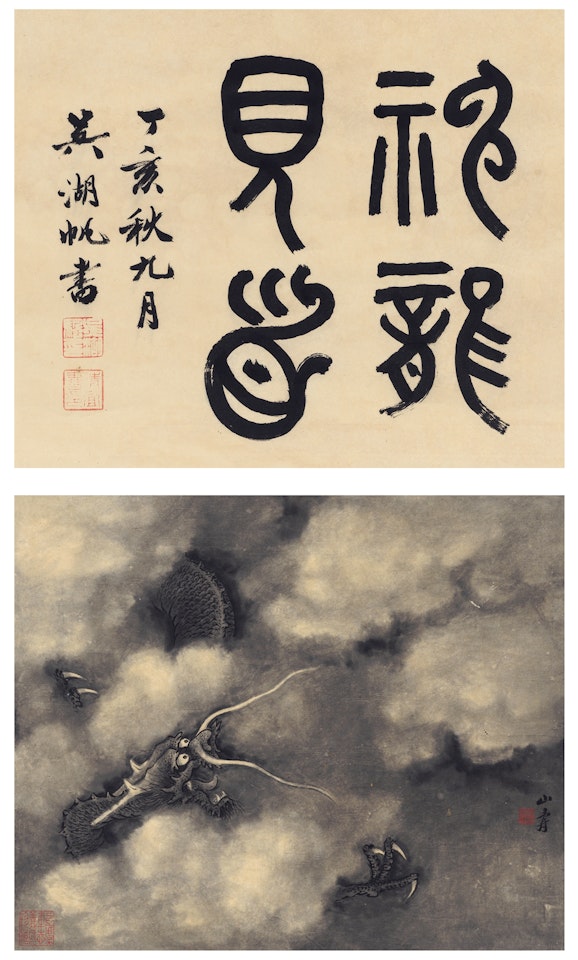 神龍
見首
丁亥秋九月
吳湖帆書